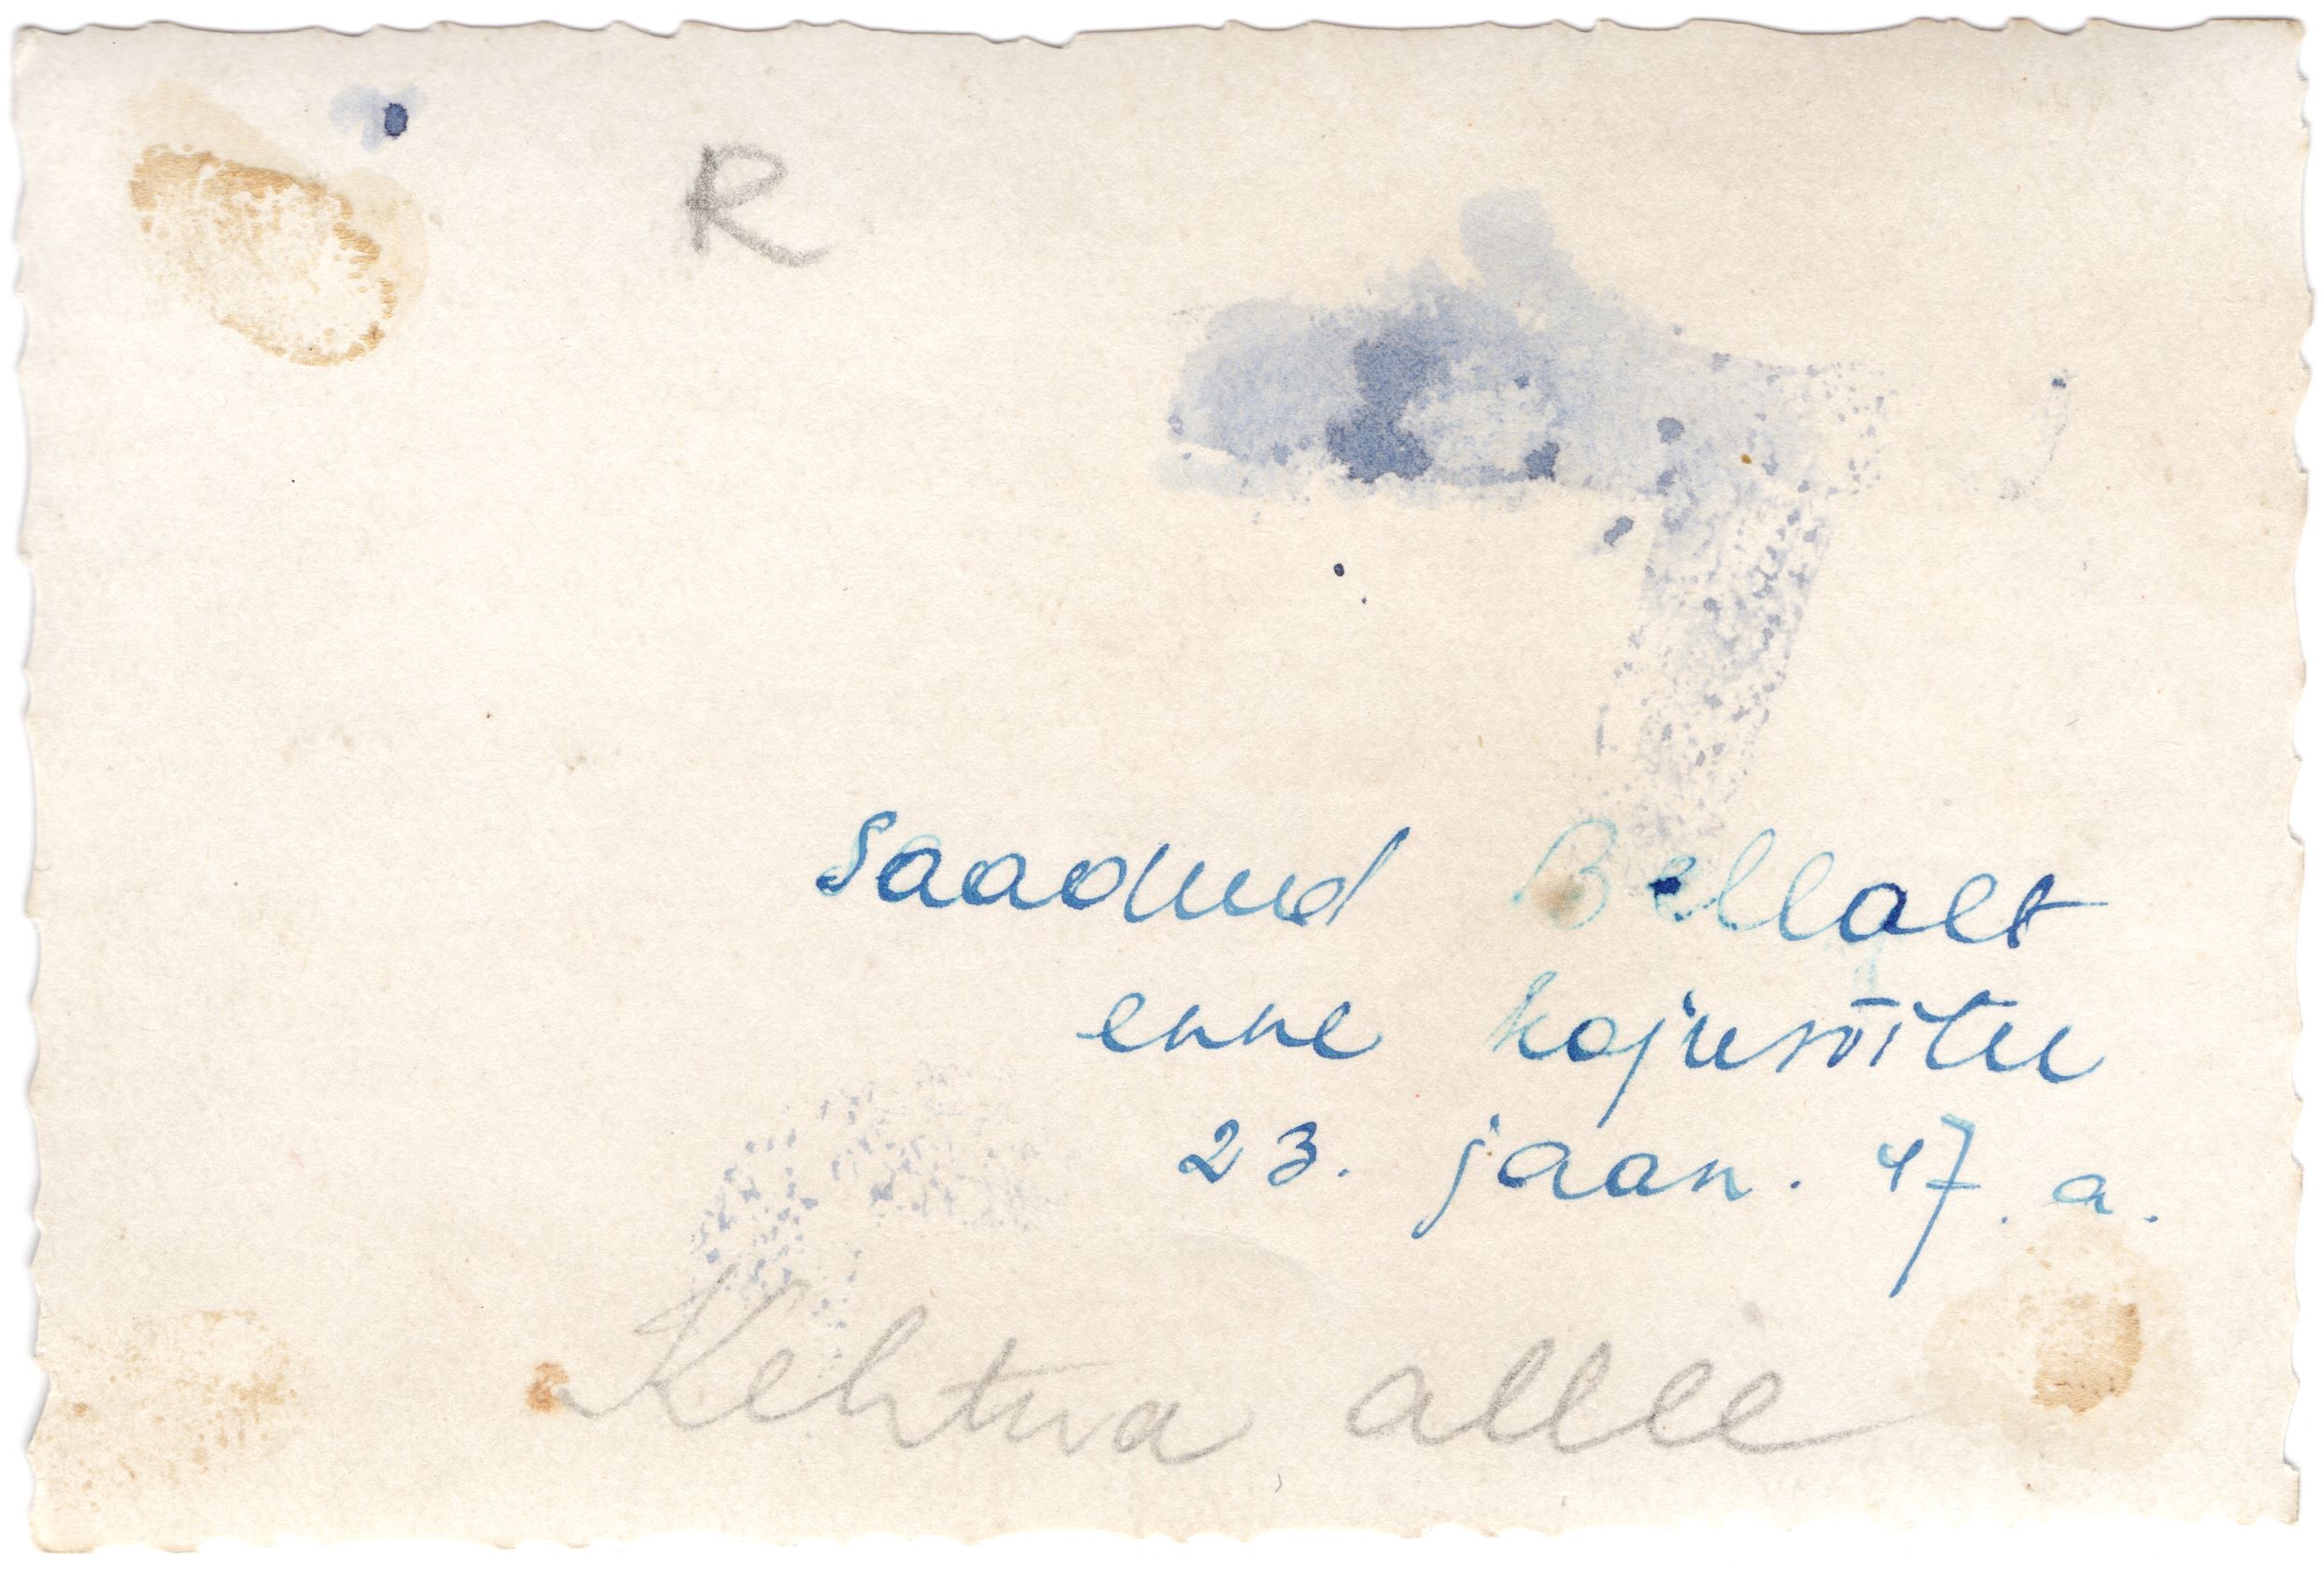 R
saadud Bellalt
enne kojusõitu
23. jaan. 47. a.
Kehtna allee